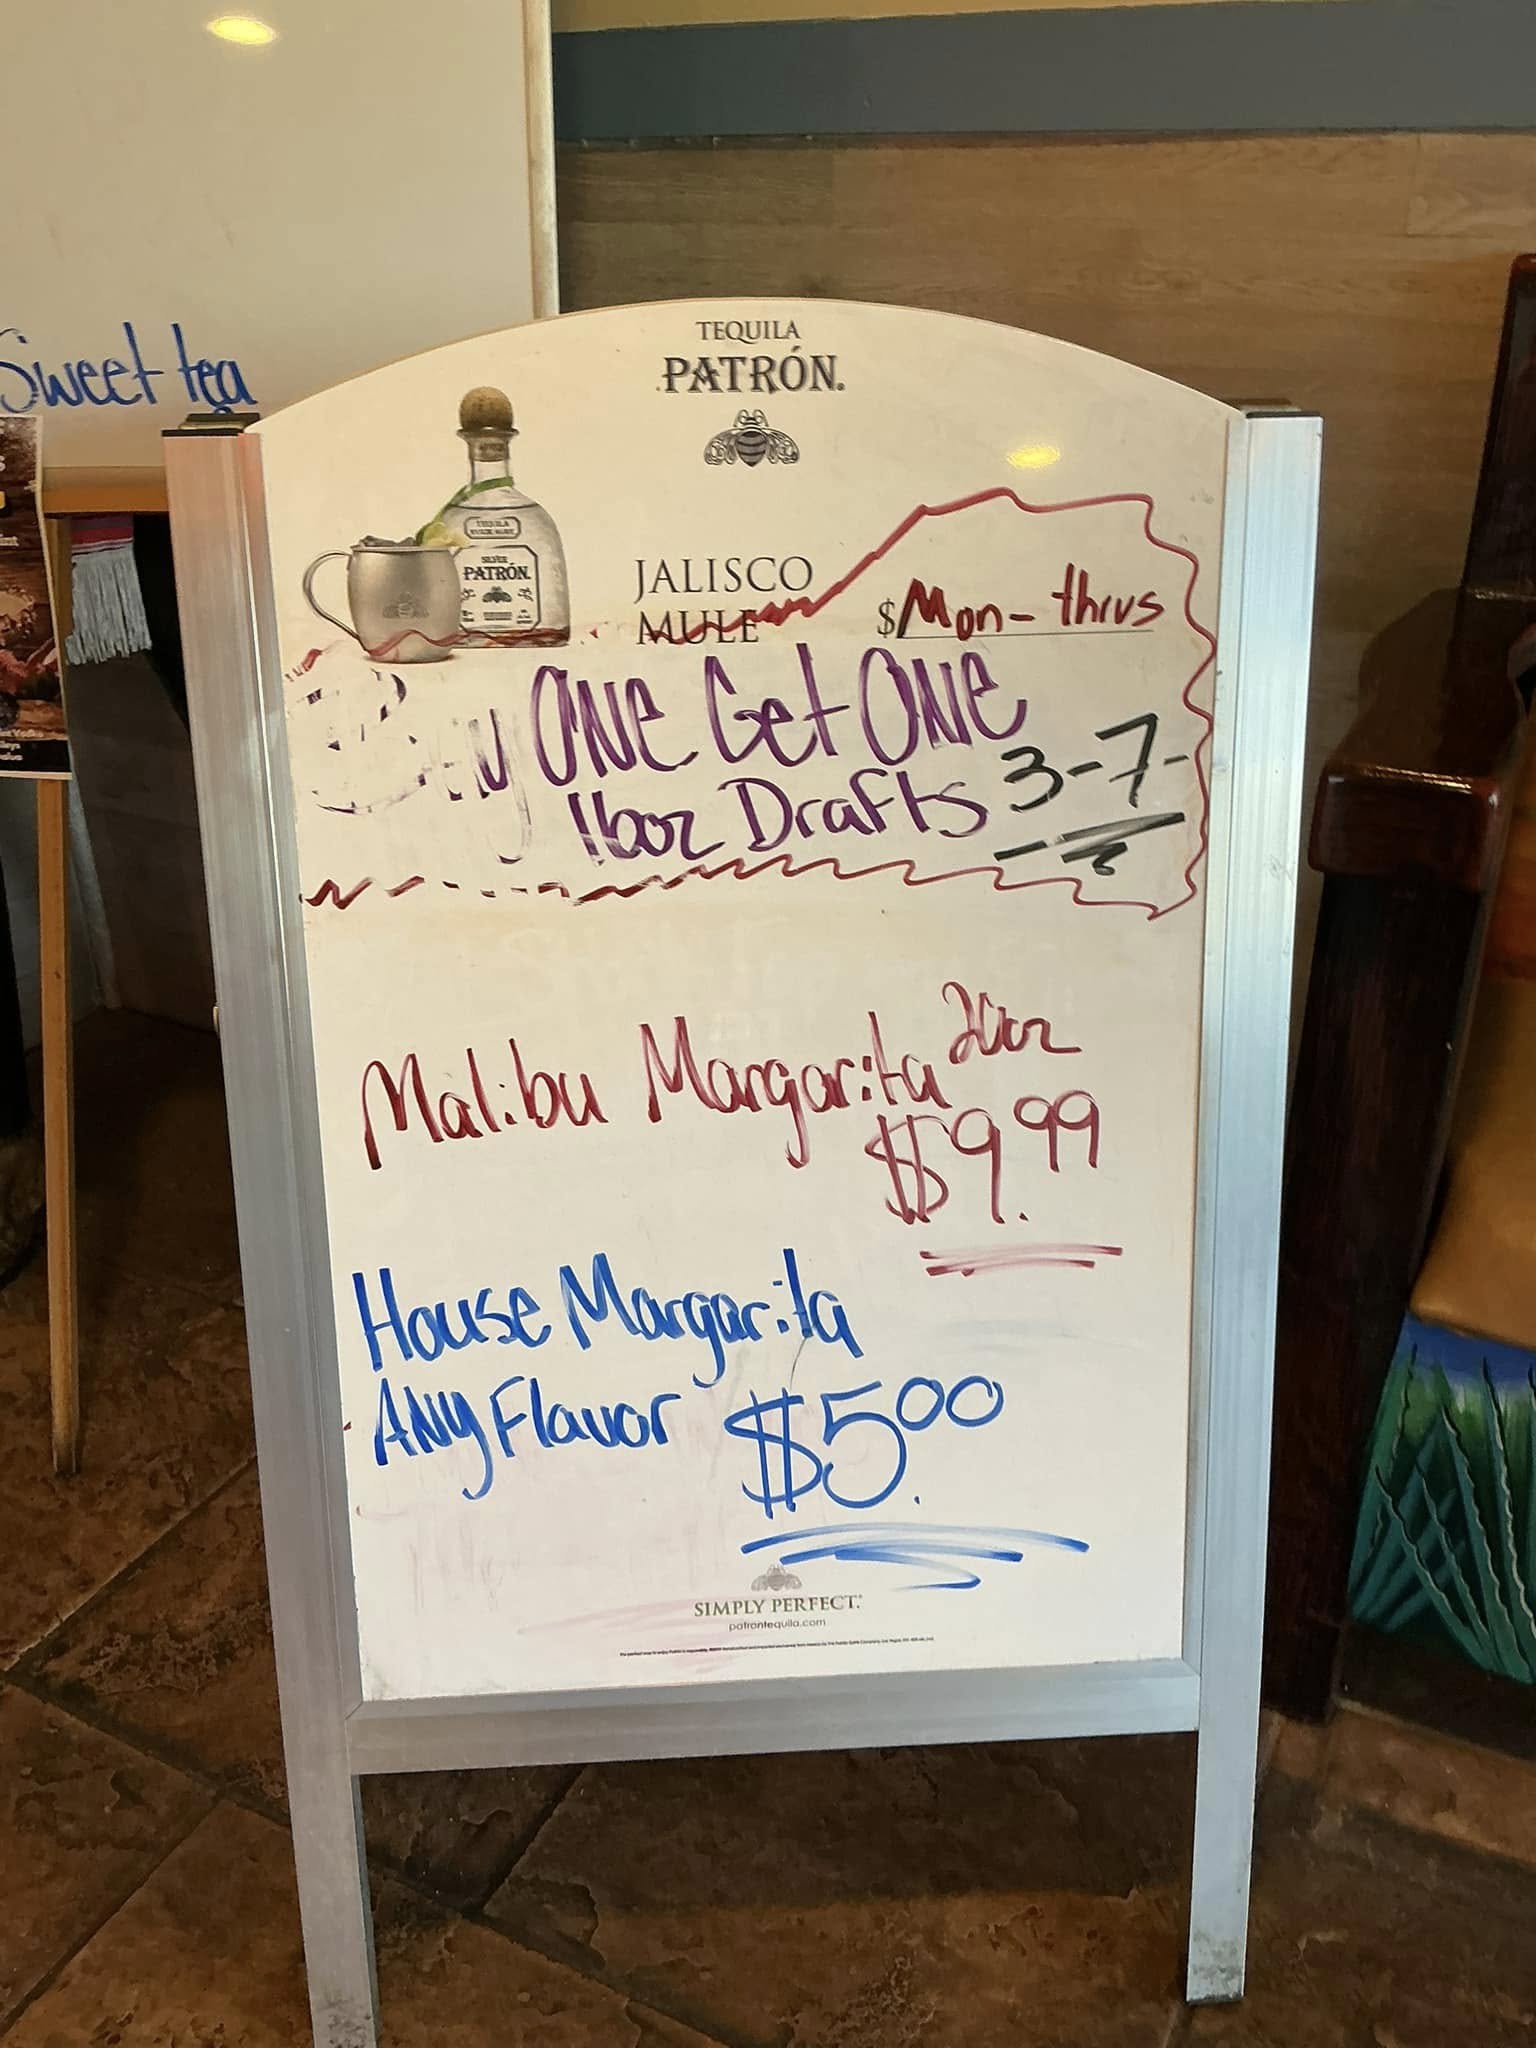 Sweet tea
TEQUILA
PATRÓN.
TEQUILA
SILVER
PATRÓN.
JALISCO
MULE
$ Mon- thrus
Buy ONE Get ONE
16oz Drafts 3-7-
Malibu Margarita 20oz
$9.99
House Margarita
ANY Flavor $5.00
SIMPLY PERFECT.
patrontequila.com